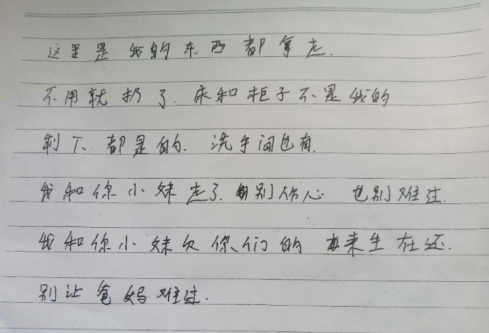 这里是我的东西都拿走.
不用就扔了.床和柜子不是我的
剩下都是的.洗手间也有.
我和你小妹走了.别伤心 也别难过.
我和你小妹欠你们的 来生在还.
别让爸妈难过.